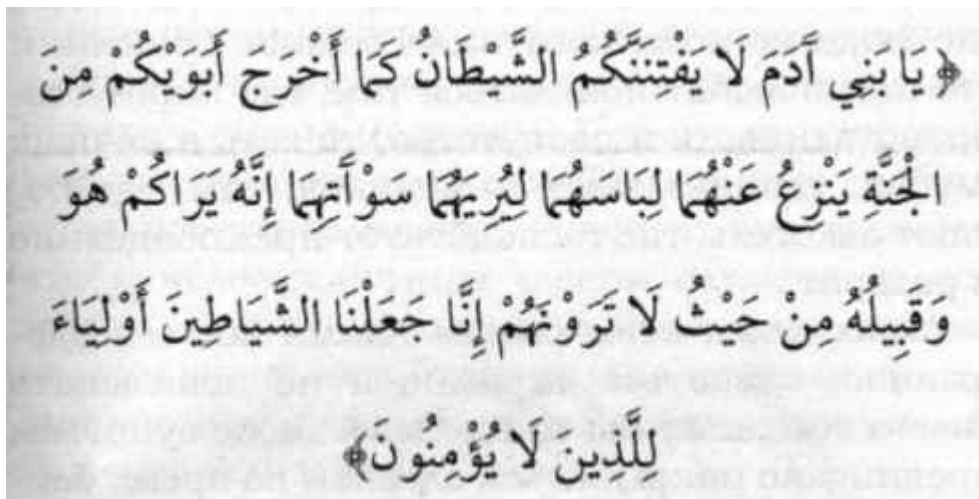 ﴿ يَا بَنِي آدَمَ لَا يَفْتِنَنَّكُمُ الشَّيْطَانُ كَمَا أَخْرَجَ أَبَوَيْكُمْ مِنَ
الْجَنَّةِ يَنْزِعُ عَنْهُمَا لِبَاسَهُمَا لِيُرِيَهُمَا سَوْآَتِهِمَا إِنَّهُ يَرَاكُمْ هُوَ
وَقَبِيلُهُ مِنْ حَيْثُ لَا تَرَوْنَهُمْ إِنَّا جَعَلْنَا الشَّيَاطِينَ أَوْلِيَاءَ
لِلَّذِينَ لَا يُؤْمِنُونَ﴾